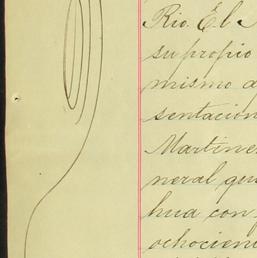 Rio. El
su propio
mismo a
sentación
Martine
neral que
hua con
ochocien